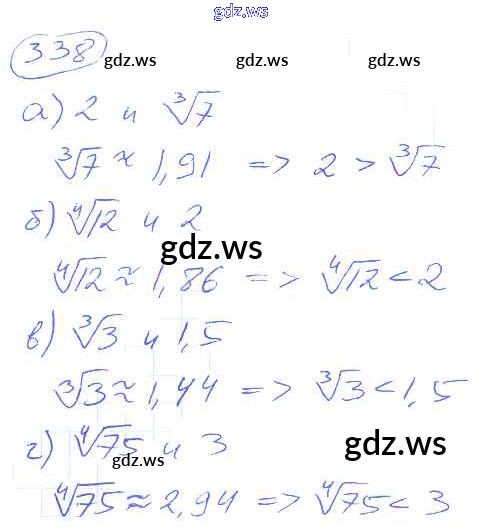 gdz.ws
338
gdz.ws gdz.ws gdz.ws
а) 2 и ∛7
∛7 ≈ 1,91 => 2 > ∛7
б) ∜12 и 2
gdz.ws
∜12 ≈ 1,86 => ∜12 < 2
в) ∛3 и 1,5
∛3 ≈ 1,44 => ∛3 < 1,5
г) ∜75 и 3
gdz.ws gdz.ws
∜75 ≈ 2,94 => ∜75 < 3